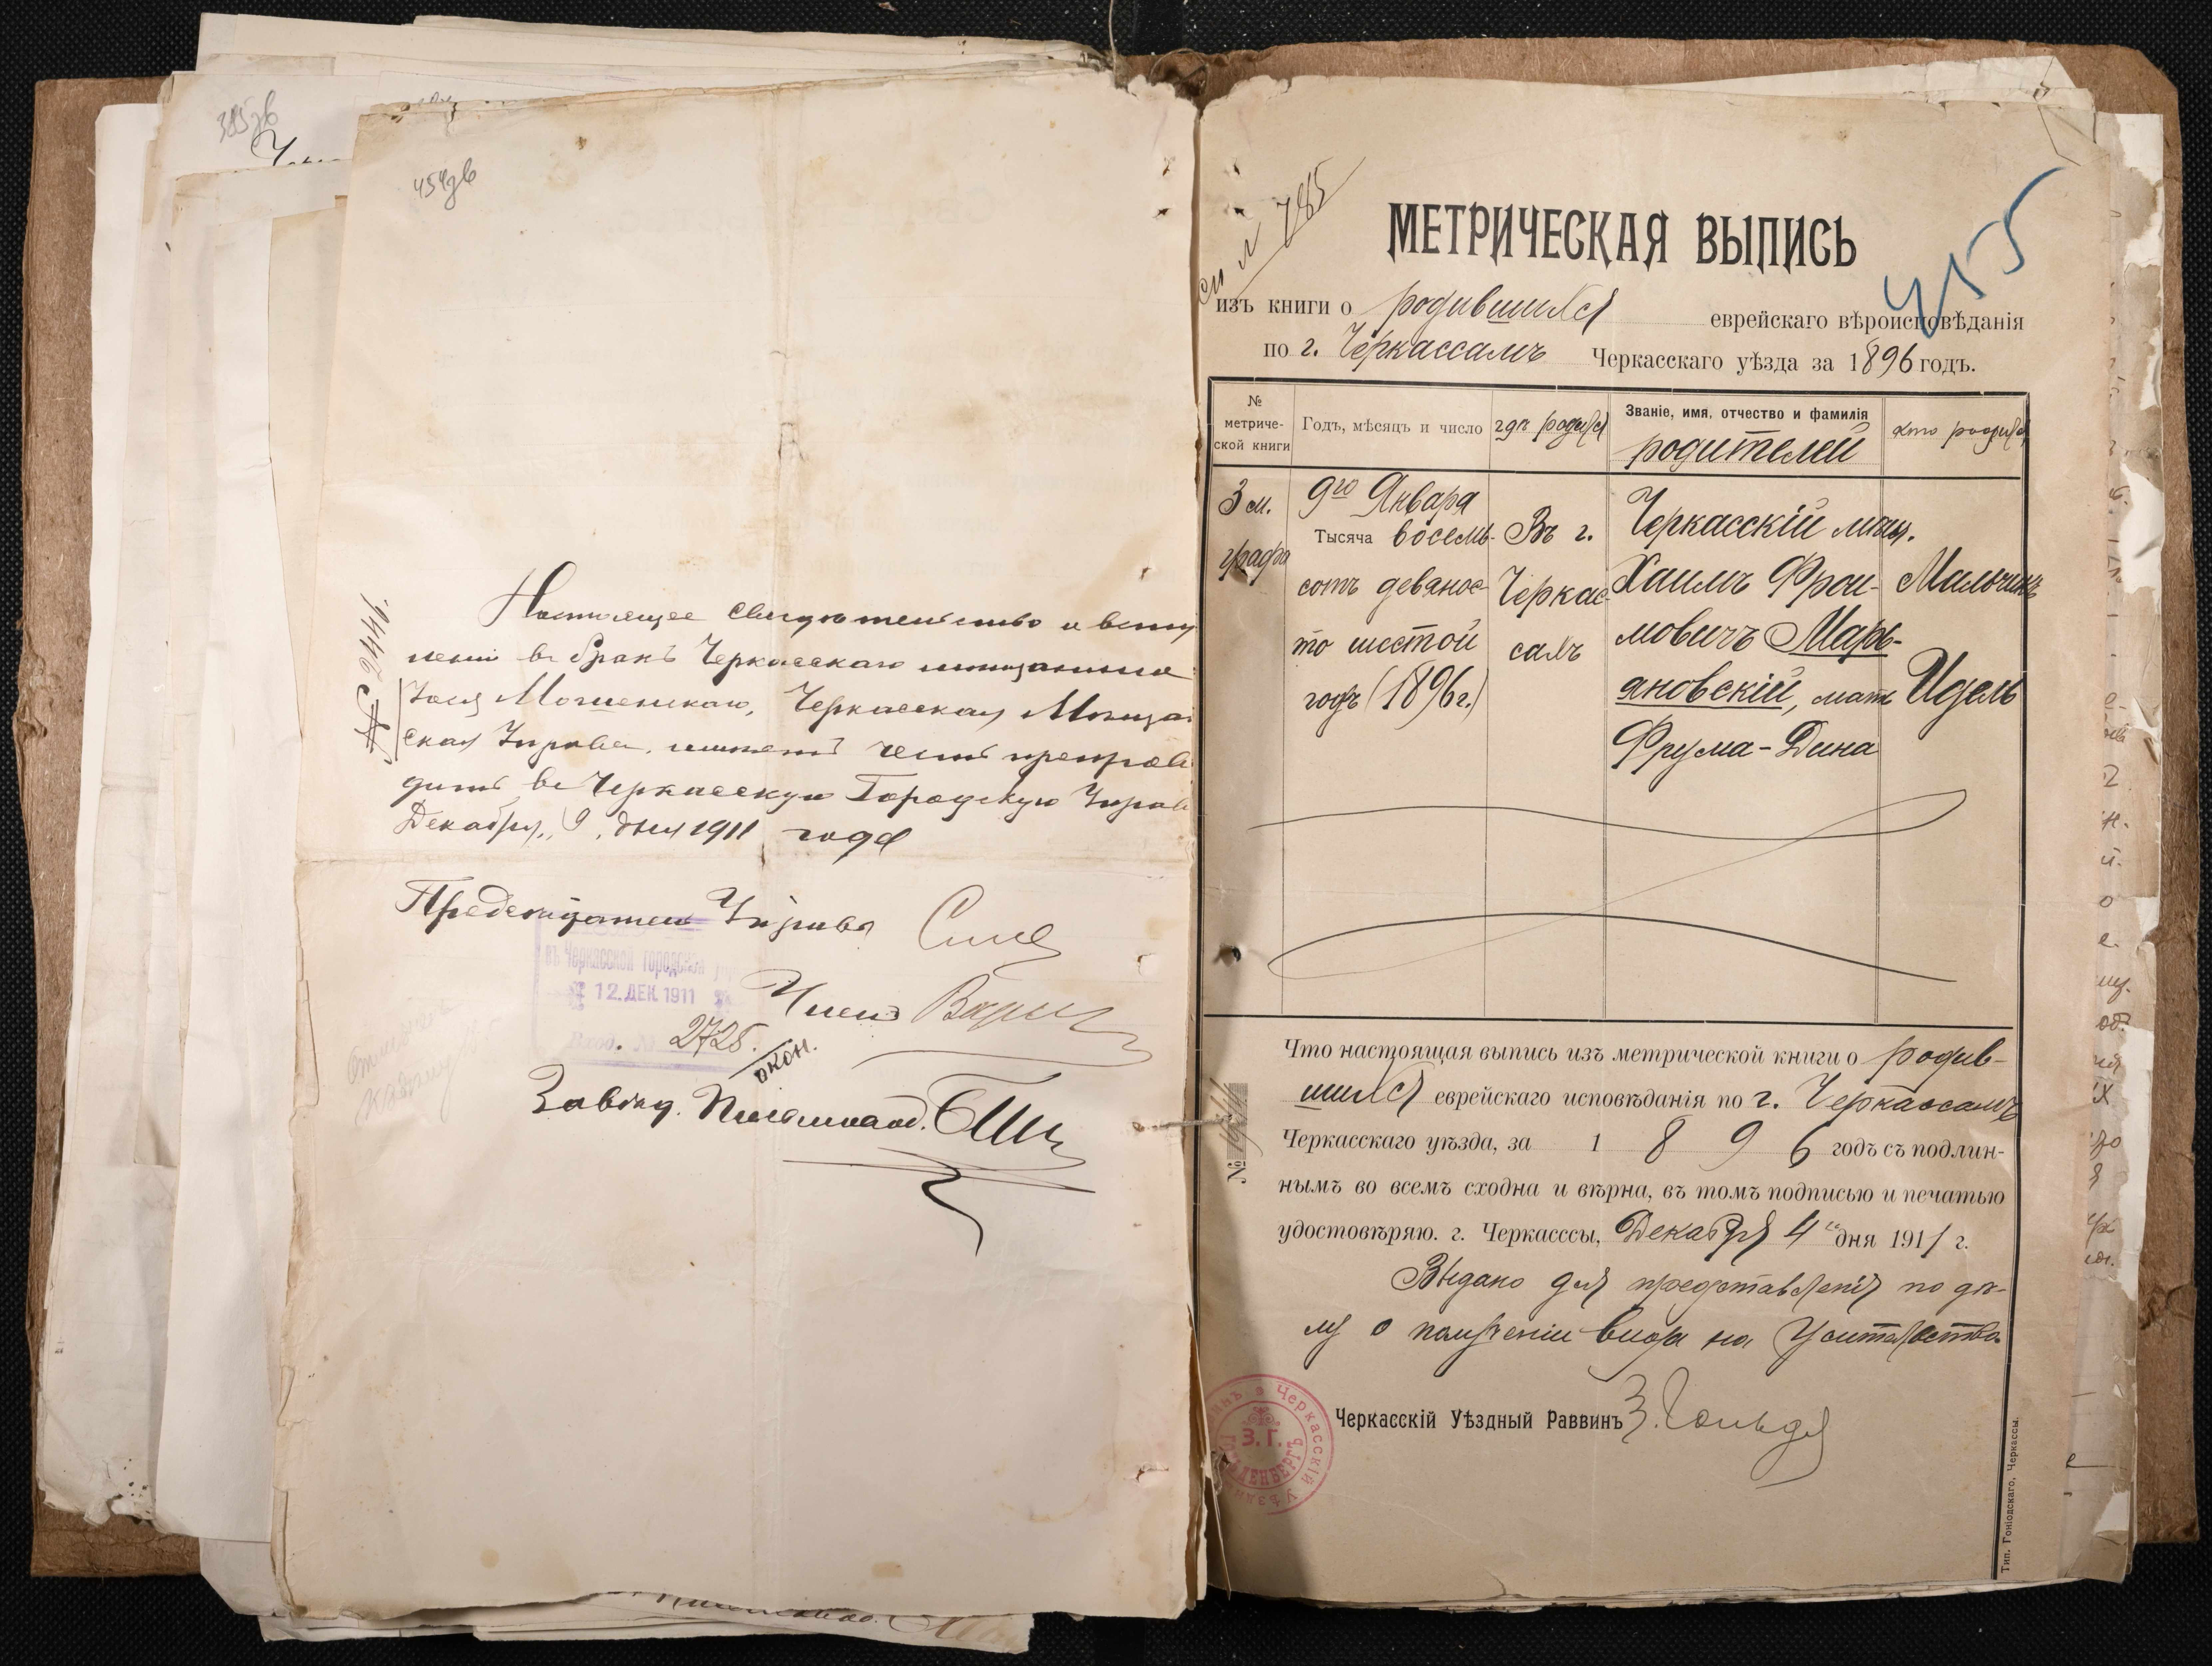 454зв
Настоящее свидѣтельство о всту
пленіи въ бракъ Черкасскаго мѣщанина
Мошенскаго, Черкасская Мѣщан
ская Управа, имѣетъ честь препрово
дить въ Черкасскую Городскую Управу
Декабря, 9, дня 1911 года
Предсѣдатель Управы
въ Черкасской городской
12. ДЕК. 1911
Вход. № 2725.
Членъ
окон.
Завѣд. Письмовод.
см № 785
455
МЕТРИЧЕСКАЯ ВЫПИСЬ
изъ книги о родившихся еврейскаго вѣроисповѣданія
по г. Черкассамъ Черкасскаго уѣзда за 1896 годъ.
№ метриче-ской книги
Годъ, мѣсяцъ и число
гдѣ родился
Званіе, имя, отчество и фамилія родителей
кто родился
3 м.
графа
9го Января
Тысяча восемь-
сотъ девянос-
то шестой
годъ (1896 г.)
Въ г.
Черкас-
сахъ
Черкасскій мѣщ.
Хаимъ Фрои-
мовичъ Марь-
яновскій, мать
Фрума-Дина
Мальчикъ
Идель
Что настоящая выпись изъ метрической книги о родив-
шихся еврейскаго исповѣданія по г. Черкассамъ
Черкасскаго уѣзда, за 1896 годъ съ подлин-
нымъ во всемъ сходна и вѣрна, въ томъ подписью и печатью
удостовѣряю. г. Черкасссы, Декабря 4 дня 1911 г.
Выдано для представленія по дѣ-
лу о полученіи вида на жительство
Черкасскій Уѣздный Раввинъ З. Гольд
З. Г.
Тип. Гоніодскаго, Черкассы.